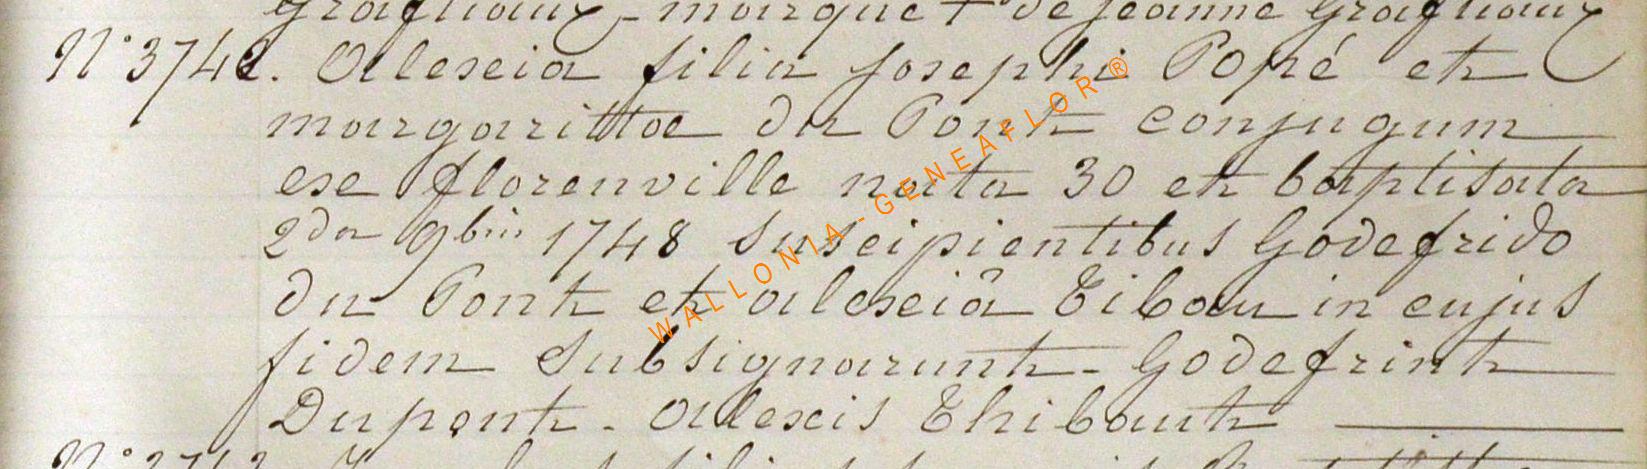 Graftiaux - marque + de Jeanne Graftiaux
N° 3742. Alexia filia Josephi Popé et
margarittae du Pont conjugum
ex florenville nata 30 et baptisata
2da 9bris 1748 Suscipientibus Godefrido
du Pont et alexiâ Tibau in cujus
fidem Subsignarunt - Godefrint
Dupont - Alexis Thibaut
WALLONIA - GENEAFLOR ®